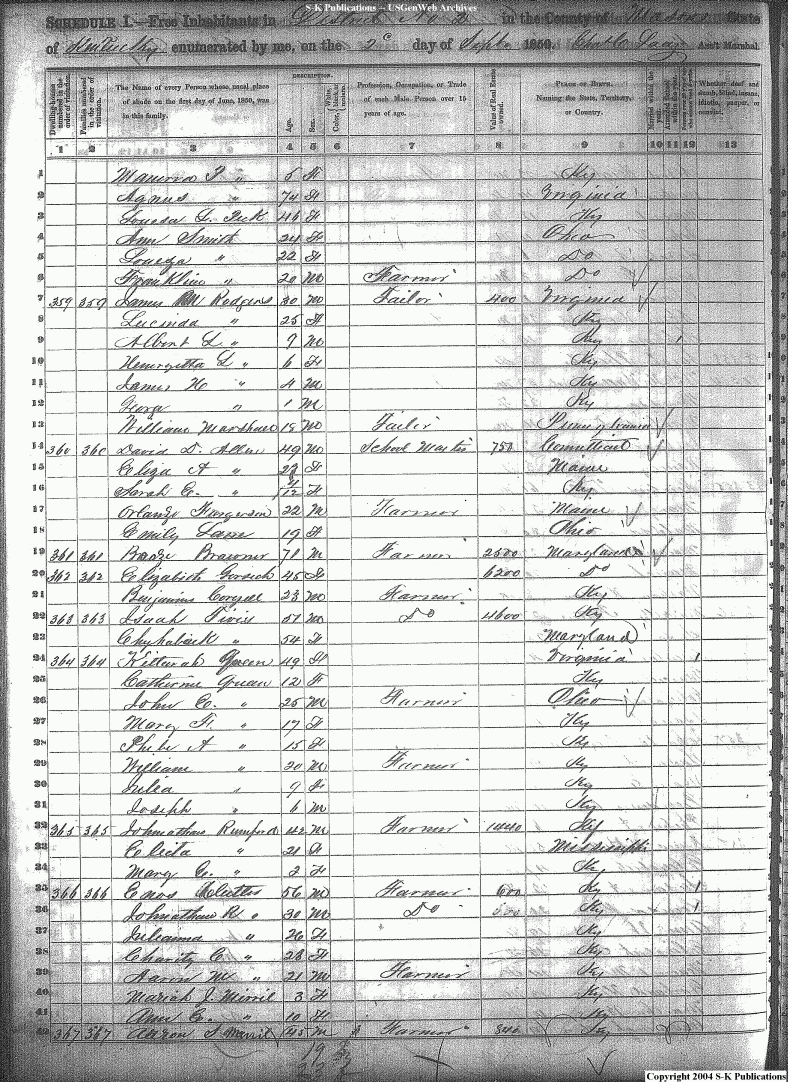 S-K Publications -- USGenWeb Archives
SCHEDULE I.—Free Inhabitants in District No 2 in the County of Mason State
of Kentucky enumerated by me, on the 2d day of Sept 1850. Ass't Marshal.
DESCRIPTION.
Dwelling-houses numbered in the order of visitation. Families numbered in the order of visitation. The Name of every Person whose usual place of abode on the first day of June, 1850, was in this family. Age. Sex. Color, White, black, or mulatto. Profession, Occupation, or Trade of each Male Person over 15 years of age. Value of Real Estate owned. PLACE OF BIRTH. Naming the State, Territory, or Country. Married within the year. Whether deaf and dumb, blind, insane, idiotic, pauper, or convict.
1 2 3 4 5 6 7 8 9 10 11 12 13
1 P. " 5 F Ky
2 Agnus " 74 F Virginia
3 Louesa L. Peck 46 F Ky
4 Ann Smith 24 F Ohio
5 Loueza " 22 F Do
6 Franklin " 20 M Farmer Do
7 359 359 James M Rodgers 30 M Tailor 400 Virginia
8 Lucinda " 25 F Ky
9 Albert L " 9 M Ky 1
10 Henryetta L " 6 F Ky
11 James H " 4 M Ky
12 " 1 M Ky
13 William Marshall 18 M Tailor
14 360 360 David D. Allen 49 M School Master 750
15 Eliza A " 23 F Maine
16 Sarah E. " /12 F Ky
17 22 M Farmer Maine
18 Emily Lane 19 F Ohio
19 361 361 71 M Farmer 2500 Maryland
20 362 362 Elizabeth 45 F 6200 Do
21 Benjamin 23 M Farmer Ky
22 363 363 Isaah 51 M Do 4600 Ky
23 " 54 F Maryland
24 364 364 Kitturah Green 49 F Virginia 1
25 Catherine Green 12 F Ky
26 John C. " 25 M Farmer Ohio
27 Mary F. " 17 F Ky
28 Phebe A " 15 F Ky
29 William " 20 M Farmer Ky
30 Julia " 9 F Ky
31 Joseph " 6 M Ky
32 365 365 Johnathan Rumford 42 M Farmer 1440 Ky
33 " 21 F Mississippi
34 Mary C. " 2 F Ky
35 366 366 Enos 56 M Farmer 600 Ky 1
36 Johnathan R. " 30 M Do 500 Ky 1
37 Julianna " 26 F Ky
38 Charity C " 28 F Ky
39 Aarin M " 21 M Farmer Ky
40 Mariah J. Mirril 3 F Ky
41 Ann C. " 10 F Ky
42 367 367 Aaron S Merril 45 M Farmer Ky
Copyright 2004 S-K Publications